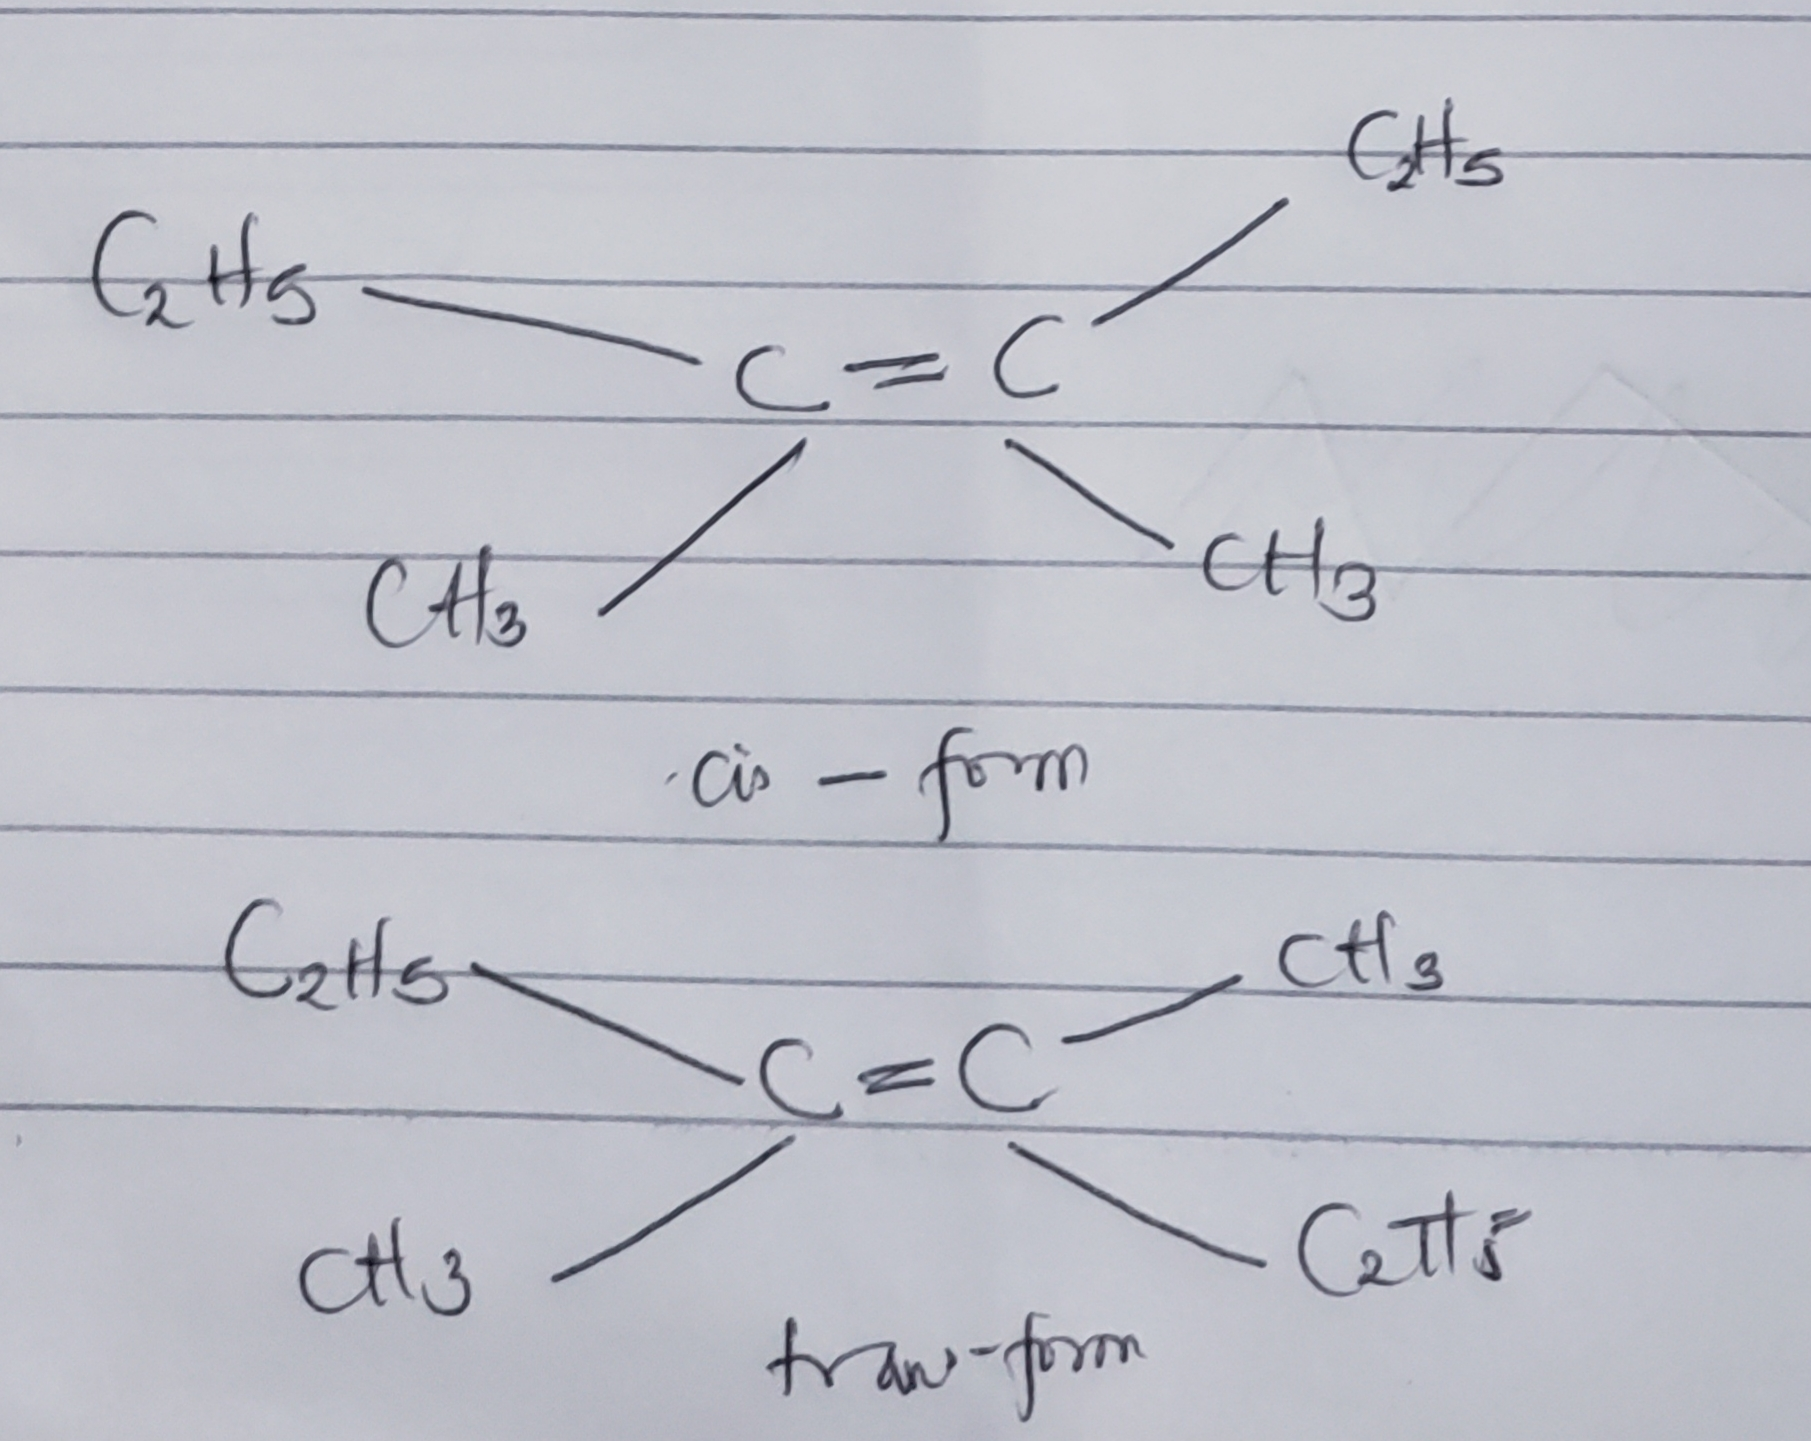 C₂H₅ C₂H₅
C = C
CH₃ CH₃
cis - form
C₂H₅ CH₃
C = C
CH₃ C₂H₅
trans-form